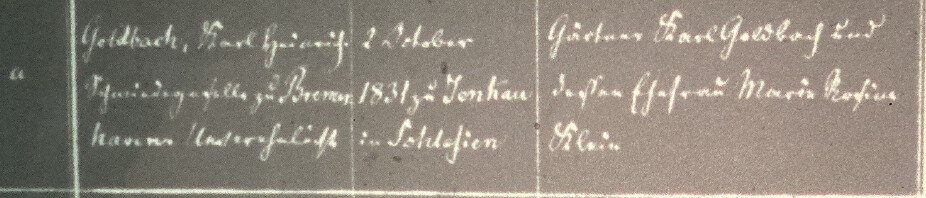 a
Goldbach, Karl Heinrich.
Schmiedegeselle zu Bremer
haven Unverehelicht
2 October
1831 zu Jenkau
in Schlesien
Gärtner Karl Goldbach und
dessen Ehefrau Marie Rosine
Klein